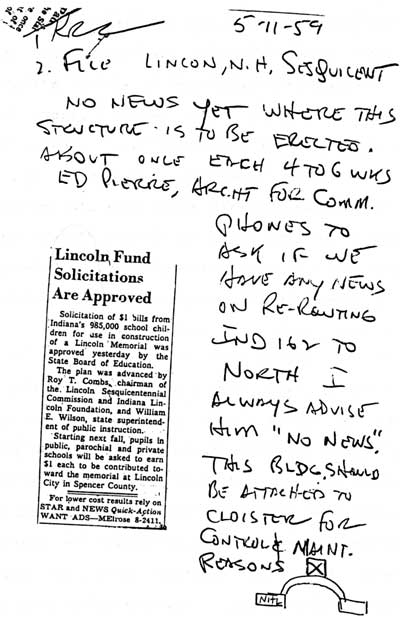 5-11-59
1.
2. FILE LINCON, N.H, SESQUICENT
NO NEWS YET WHERE THIS
STRUCTURE IS TO BE ERECTED.
ABOUT ONCE EACH 4 TO 6 WKS
ED PIERRE, ARCHT FOR COMM.
PHONES TO
ASK IF WE
HAVE ANY NEWS
ON RE-ROUTING
IND 162 TO
NORTH I
ALWAYS ADVISE
HIM "NO NEWS".
THIS BLDG. SHOULD
BE ATTACHED TO
CLOISTER FOR
CONTROL & MAINT.
REASONS
Lincoln Fund
Solicitations
Are Approved
Solicitation of $1 bills from
Indiana's 985,000 school chil-
dren for use in construction
of a Lincoln Memorial was
approved yesterday by the
State Board of Education.
The plan was advanced by
Roy T. Combs, chairman of
the Lincoln Sesquicentennial
Commission and Indiana Lin-
coln Foundation, and William
E. Wilson, state superintend-
ent of public instruction.
Starting next fall, pupils in
public, parochial and private
schools will be asked to earn
$1 each to be contributed to-
ward the memorial at Lincoln
City in Spencer County.
For lower cost results rely on
STAR and NEWS Quick-Action
WANT ADS—MElrose 8-2411.